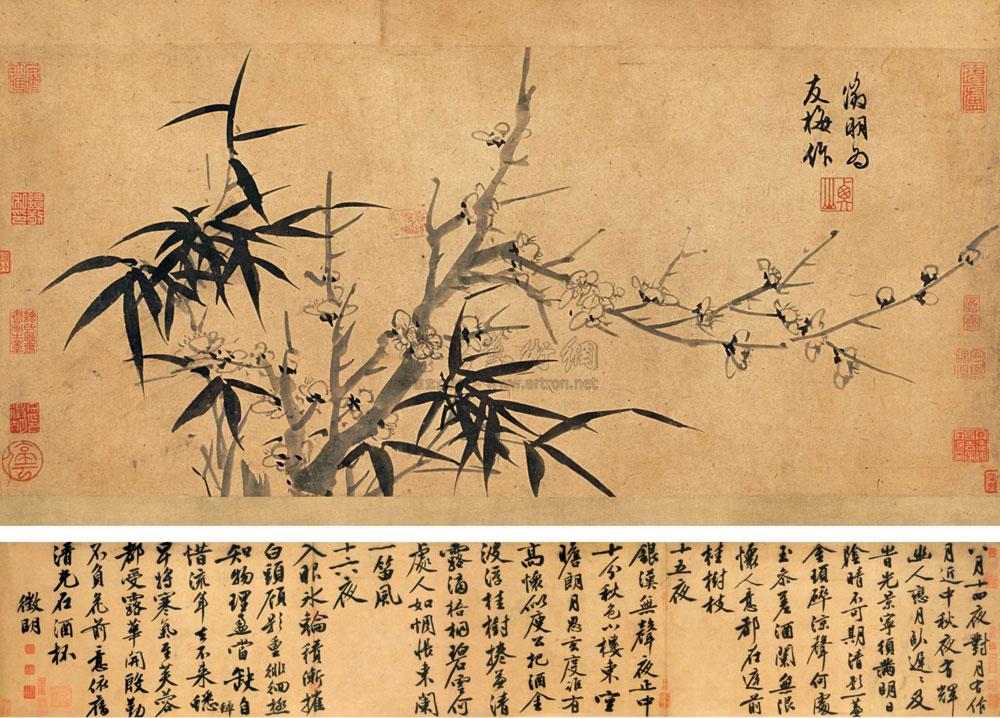 徵明為
友梅作
美術網
www.artron.net
八月十四夜對月有作
月近中秋夜有輝
幽人戀月臥遲〻及
當光景寧須滿明日
陰晴不可期清影一簾
金瑣碎涼聲何處
玉參差酒闌無限
懷人意都在前
桂樹枝
十五夜
銀漢無聲夜正中
十分秋色小樓東空
瞻朗月思玄度誰有
高懷似庾公把酒金
波浮桂樹捲簾清
露滴梧桐碧雲何
處人如惆悵東闌
一笛風
十六夜
入眼冰輪積漸摧
白頭顧影重徘徊極
知物理盈當缺自
惜流年去不來
早將寒氣至芙蓉
都受露華開殷勤
不負花前意依舊
清光在酒杯
徵明